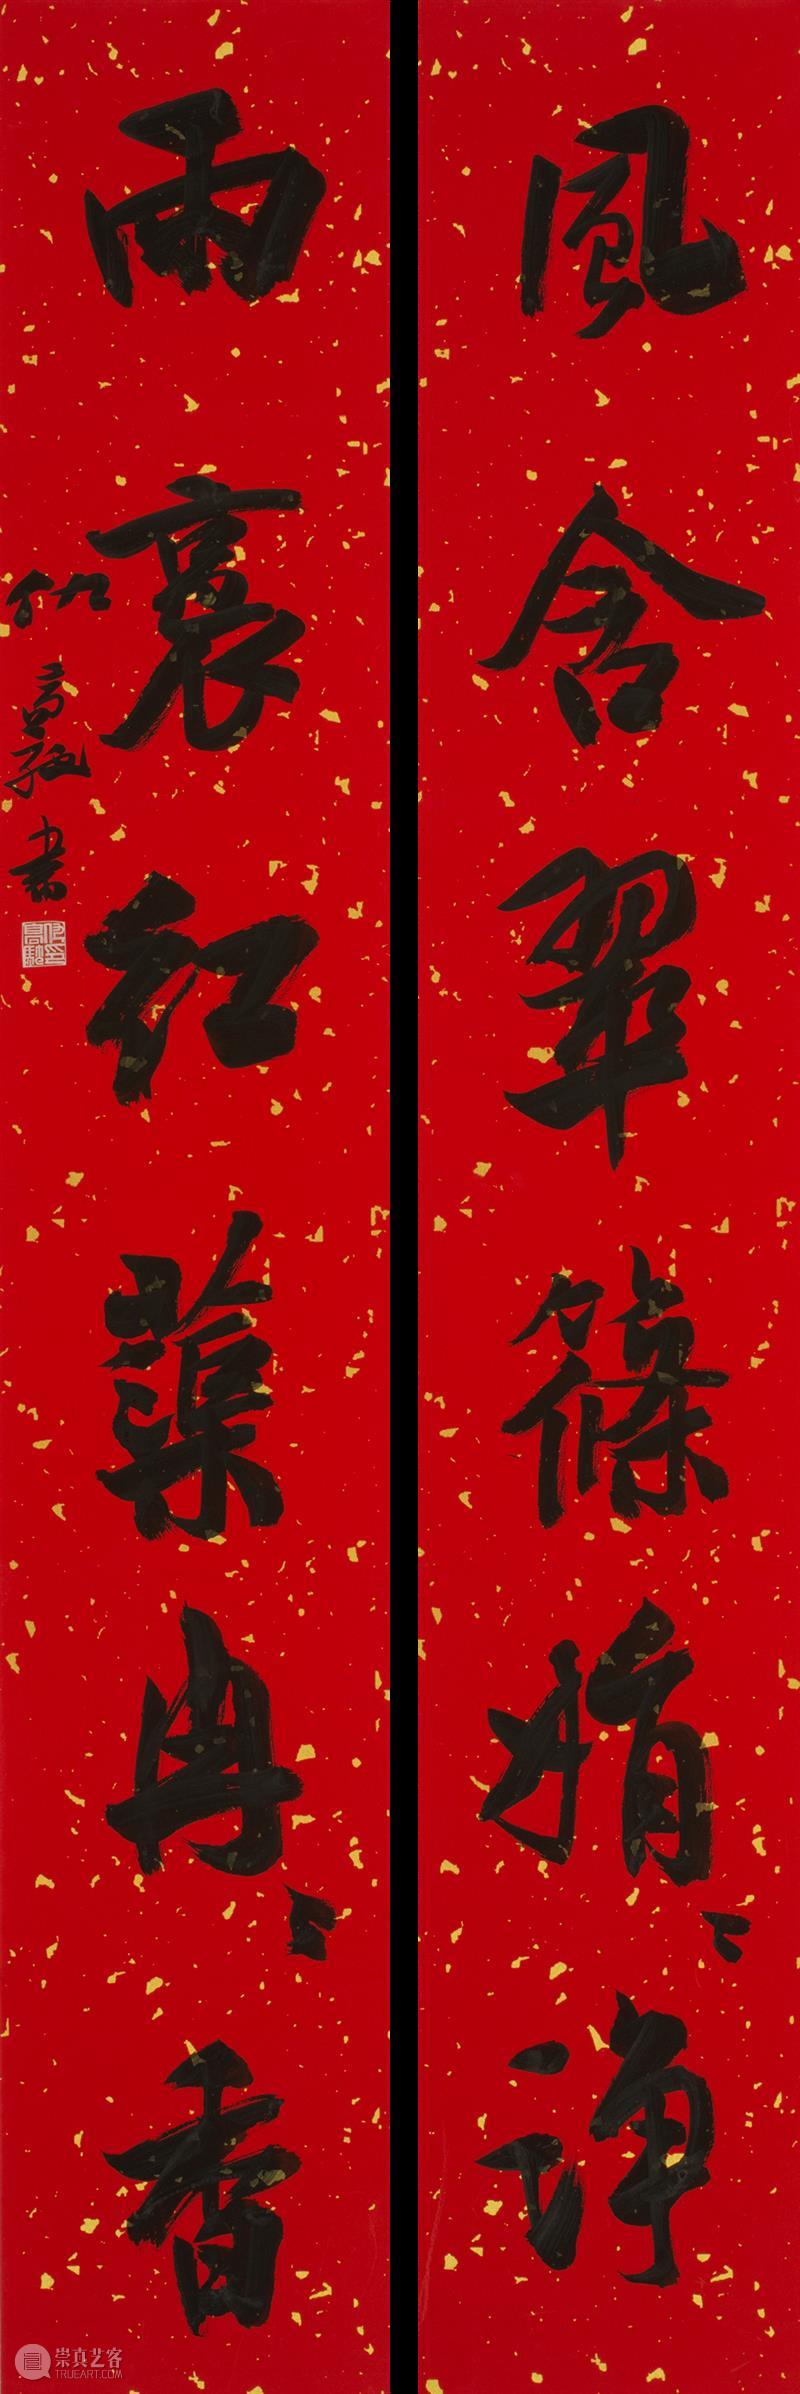 風含翠篠娟〻淨
雨裛紅蕖冉〻香
仇高馳書
仇高馳印
崇真艺客
TRUEART.COM